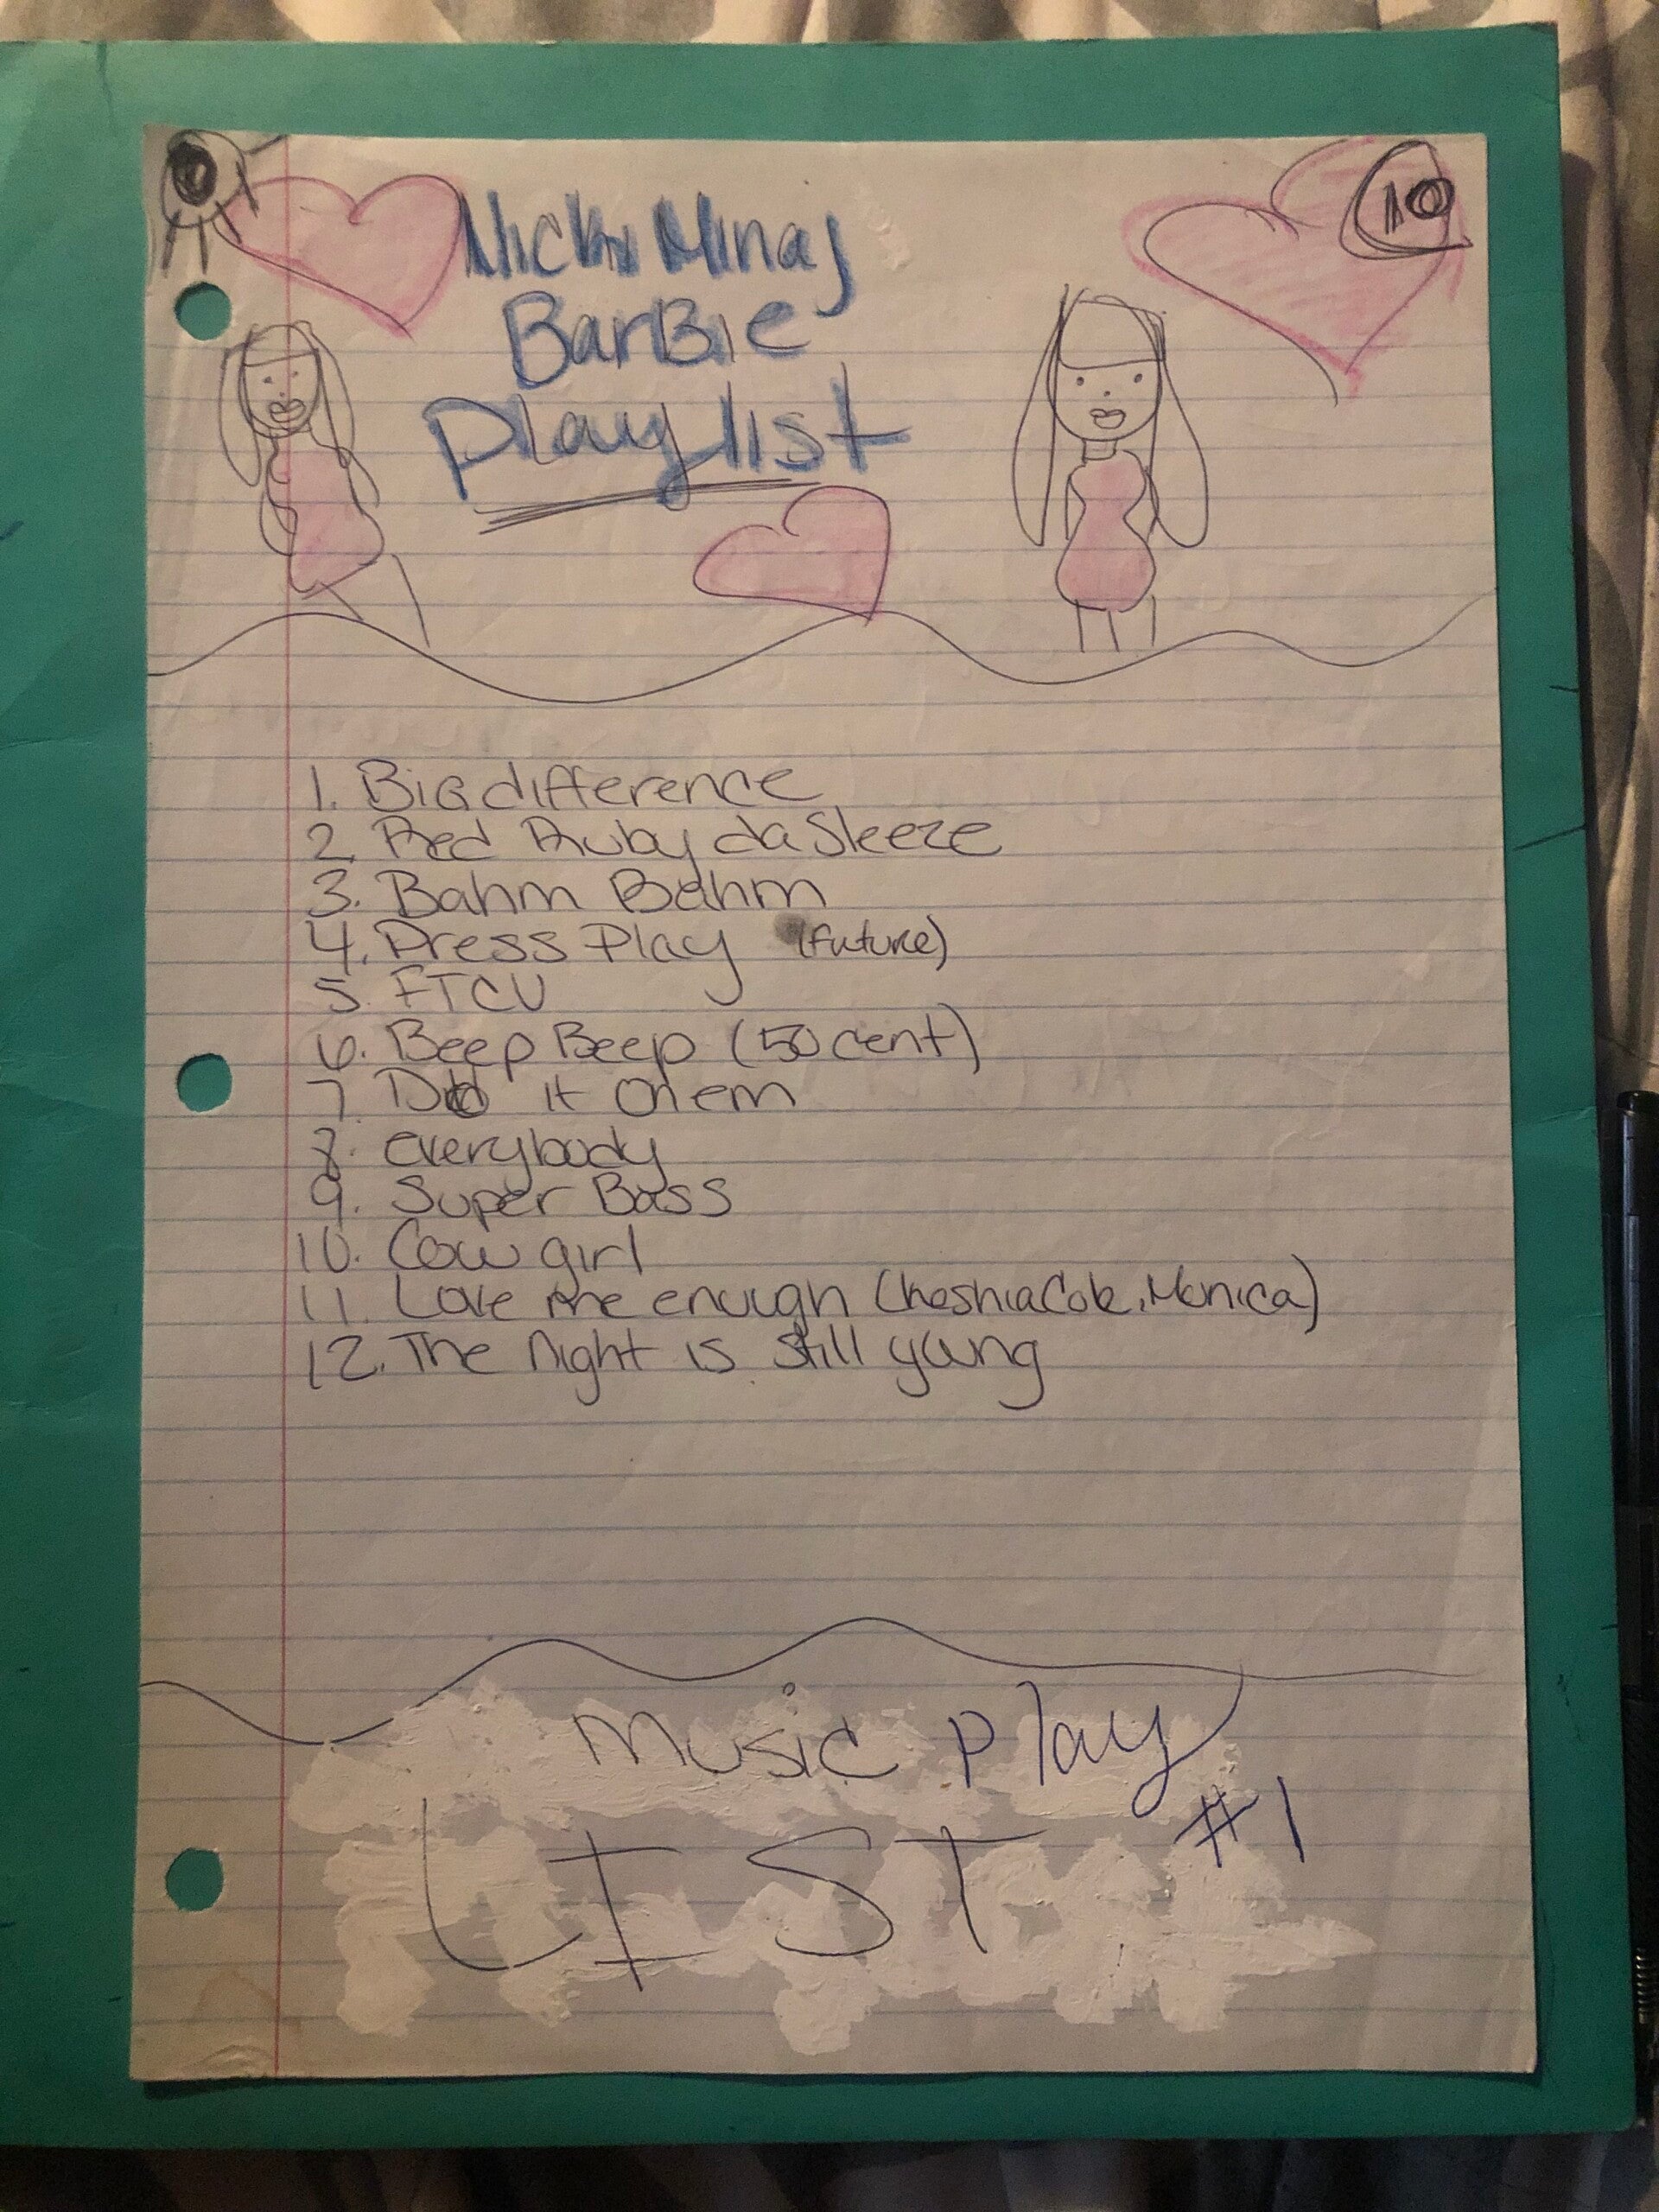 10
Nicki Minaj
BarBie
Playlist
1. Big difference
2. Red Ruby da Sleeze
3. Bahm Bahm
4. Press Play (future)
5. FTCU
6. Beep Beep (50 cent)
7. Did it On em
8. everybody
9. Super Bass
10. Cow girl
11. Love me enough (KeshiaCole, Monica)
12. The Night is still young
Music Play
LIST #1